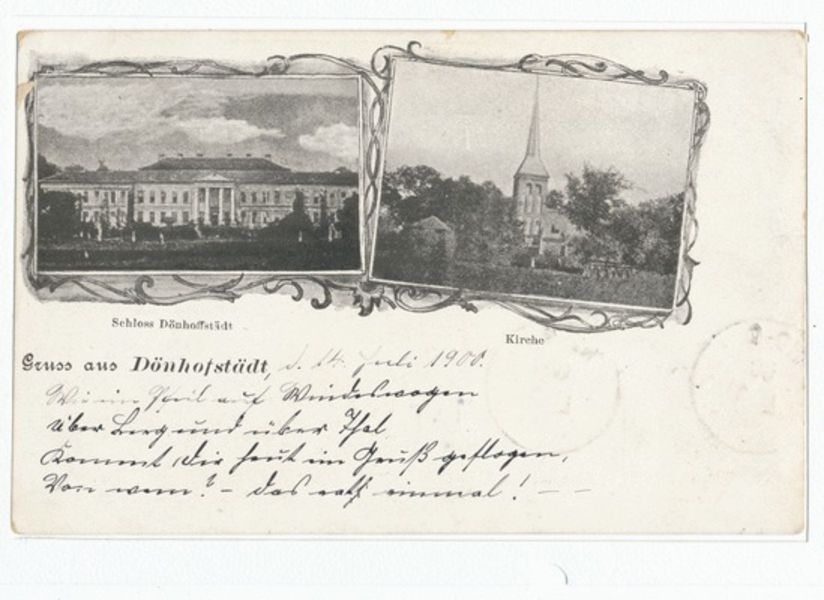 Schloss Dönhoffstädt
Kirche
Gruss aus Dönhofstädt, d. 14. Juli 1900.
Wie ein Pfeil auf Windeswogen
Über Berg und über Thal
Kommt, dir heut ein Gruß geflogen,
Von wem? – das rath einmal! – –